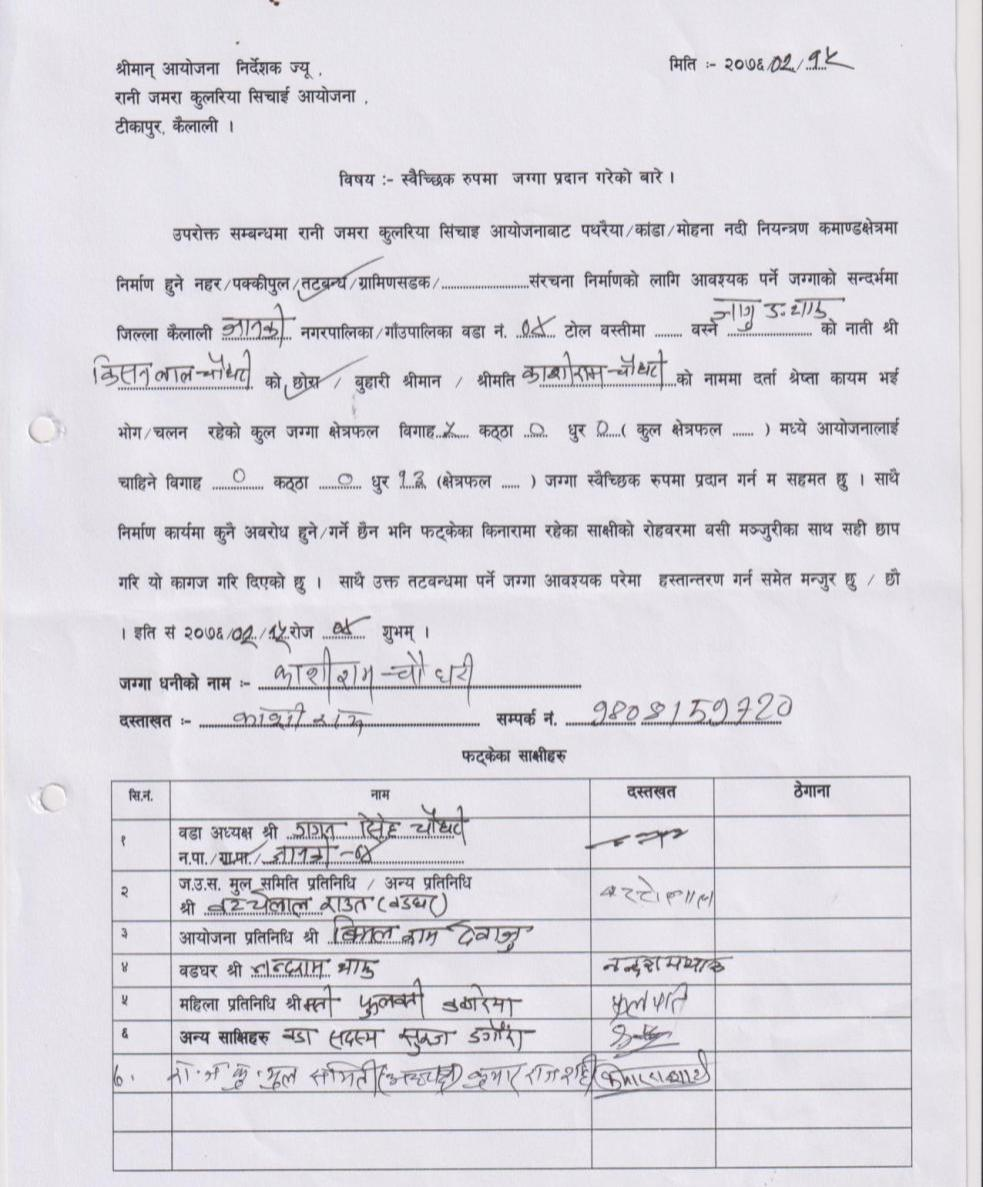 श्रीमान् आयोजना निर्देशक ज्यू ,
मिति :- २०७६/02/१५
रानी जमरा कुलरिया सिचाई आयोजना ,
टीकापुर, कैलाली ।
विषय :- स्वैच्छिक रुपमा जग्गा प्रदान गरेको बारे ।
उपरोक्त सम्बन्धमा रानी जमरा कुलरिया सिंचाइ आयोजनाबाट पथरैया/कांडा/मोहना नदी नियन्त्रण कमाण्डक्षेत्रमा
निर्माण हुने नहर/पक्कीपुल/तटबन्ध/ग्रामिणसडक/........................संरचना निर्माणको लागि आवश्यक पर्ने जग्गाको सन्दर्भमा
जिल्ला कैलाली जानकी नगरपालिका/गाँउपालिका वडा नं. टोल वस्तीमा ...... वस्ने को नाती श्री
किसन लाल चौधरी को छोरा / बुहारी श्रीमान / श्रीमति काशीराम चौधरी को नाममा दर्ता श्रेष्ता कायम भई
भोग/चलन रहेको कुल जग्गा क्षेत्रफल विगाह कठ्ठा 0 धुर 0 ( कुल क्षेत्रफल ...... ) मध्ये आयोजनालाई
चाहिने विगाह 0 कठ्ठा 0 धुर (क्षेत्रफल ..... ) जग्गा स्वैच्छिक रुपमा प्रदान गर्न म सहमत छु । साथै
निर्माण कार्यमा कुनै अवरोध हुने/गर्ने छैन भनि फट्केका किनारामा रहेका साक्षीको रोहवरमा वसी मञ्जुरीका साथ सही छाप
गरि यो कागज गरि दिएको छु । साथै उक्त तटवन्धमा पर्ने जग्गा आवश्यक परेमा हस्तान्तरण गर्न समेत मन्जुर छु / छौ
। इति सं २०७६/02/१५ रोज शुभम् ।
जग्गा धनीको नाम :- काशीराम चौधरी
दस्ताखत :- काशी राम सम्पर्क नं. 9808159720
फट्केका साक्षीहरु
सि.नं. नाम दस्तखत ठेगाना
१ वडा अध्यक्ष श्री सिंह चौधरी
न.पा./गा.पा./ जानकी
२ ज.उ.स. मुल समिति प्रतिनिधि / अन्य प्रतिनिधि
श्री राउत (वडघर)
३ आयोजना प्रतिनिधि श्री
४ वडघर श्री
५ महिला प्रतिनिधि श्रीमती
६ अन्य साक्षिहरु वडा सदस्य
मुल समिति (अध्यक्ष)